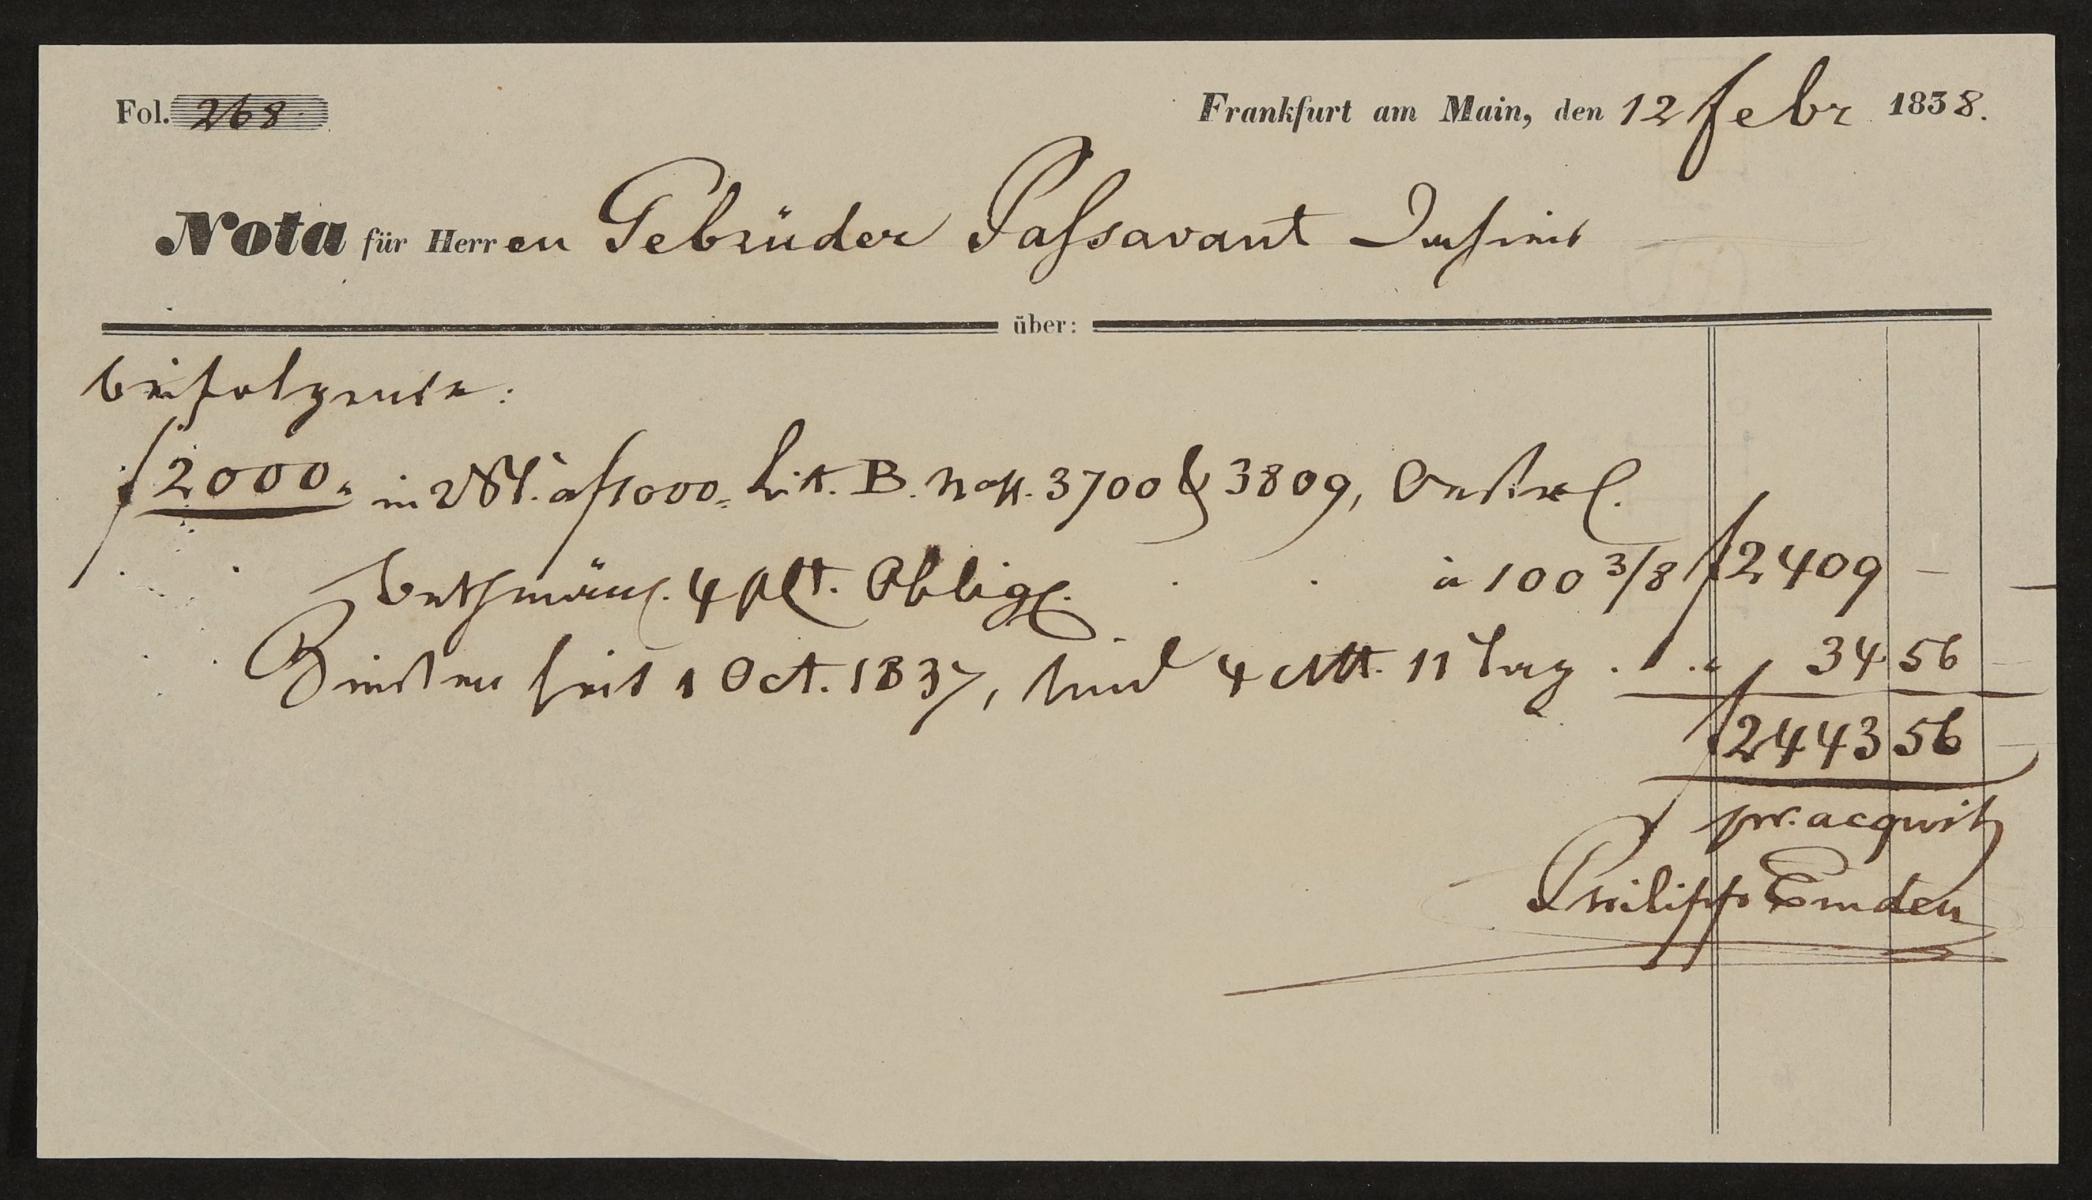 Fol. 268.
Frankfurt am Main, den 12 Febr 1838.
Nota für Herren Gebrüder Passavant
über:
beifolgende:
f 2000,, in 2 St. à f 1000,, Litt. B. No. 3700 & 3809, Oestr.
Bethmän. 4 pCt. Oblig. à 100 3/8 f 2409 –
Zinsen seit 1 Oct. 1837, sind 4 Mt. 11 Tag . . 34 56
f 2443 56
pr. acquit
Philipp Emden